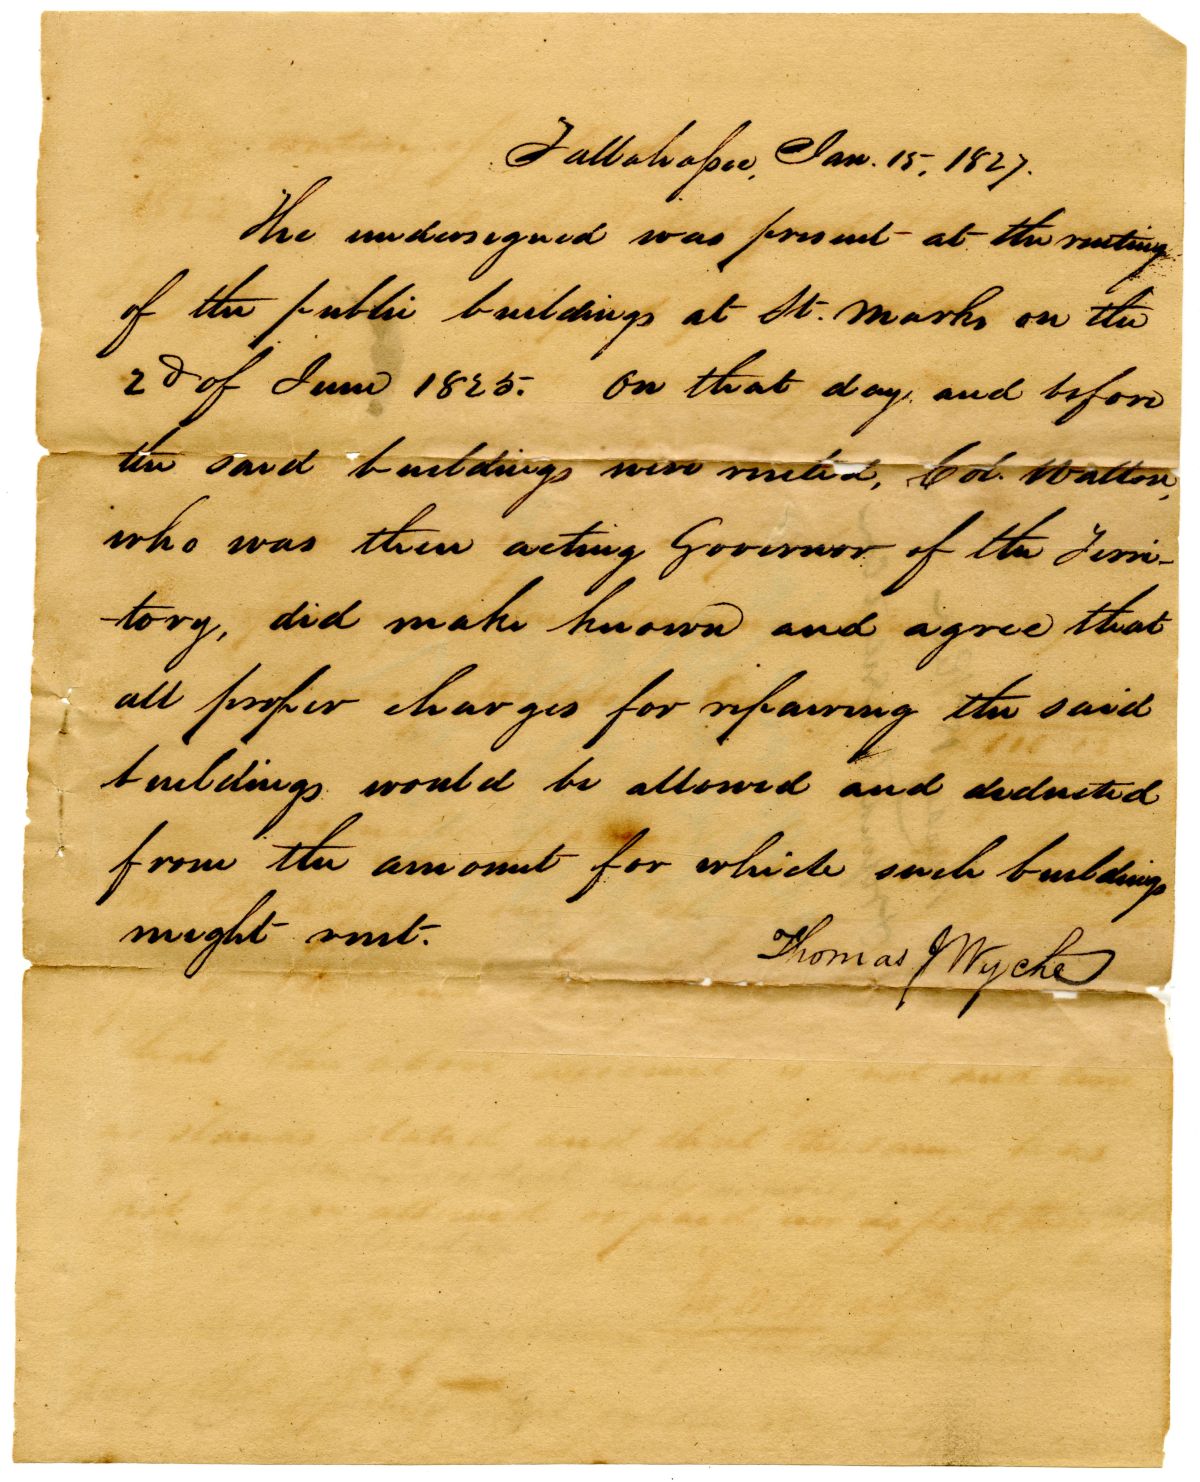 Tallahassee, Jan. 15, 1827.
The undersigned was present at the renting
of the public buildings at St. Marks on the
2d of June 1825. On that day and before
the said buildings were rented, Col. Walton,
who was then acting Governor of the Terri-
-tory, did make known and agree that
all proper charges for repairing the said
buildings would be allowed and deducted
from the amount for which such buildings
might rent.
Thomas J Wyche